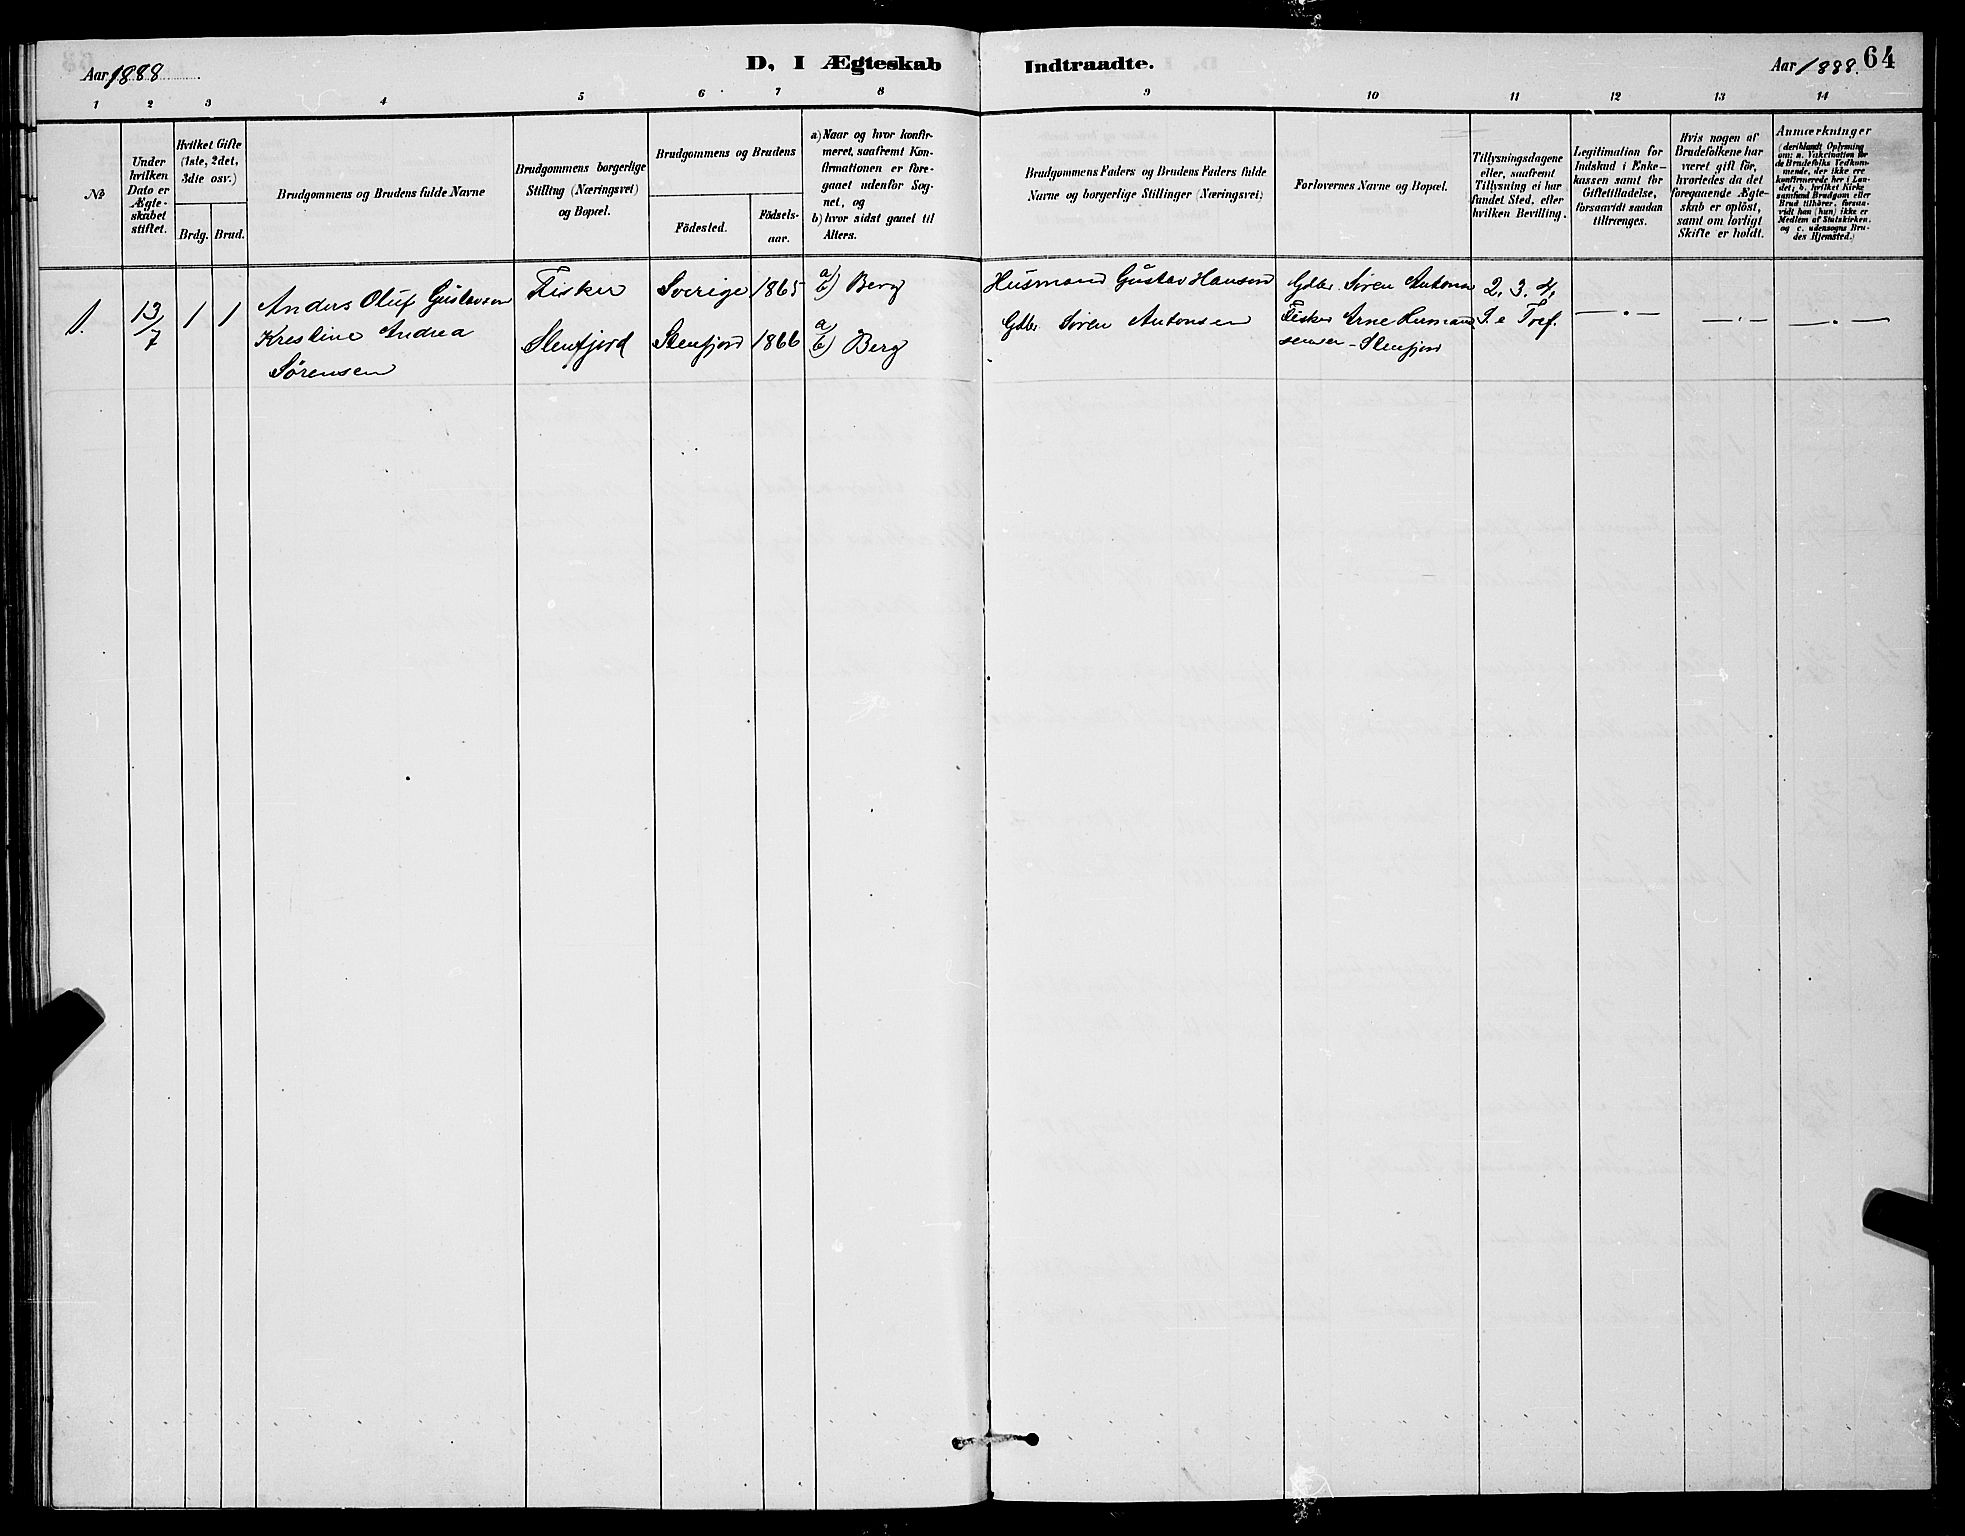 Aar 1888
D, I Ægteskab Indtraadte.
Aar 1888.
64
1 2 3 4 5 6 7 8 9 10 11 12 13 14
№
Under
hvilken
Dato er
Ægte-
skabet
stiftet.
Hvilket Gifte
(1ste, 2det,
3die osv.)
Brdg.
Brud.
Brudgommens og Brudens fulde Navne
Brudgommens borgerlige
Stilling (Næringsvei)
og Bopæl.
Brudgommens og Brudens
Födested.
Födsels-
aar.
a) Naar og hvor konfir-
meret, saafremt Kon-
firmationen er fore-
gaaet udenfor Sog-
net, og
b) hvor sidst gaaet til
Alters.
Brudgommens Faders og Brudens Faders fulde
Navne og borgerlige Stillinger (Næringsvei)
Forlovernes Navne og Bopæl.
Tillysningsdagene
eller, saafremt
Tillysning ei har
fundet Sted, efter
hvilken Bevilling.
Legitimation for
Indskud i Enke-
kassen samt for
Giftetilladelse,
forsaavidt saadan
tiltrænges.
Hvis nogen af
Brudefolkene har
været gift för,
hvorledes da det
foregaaende Ægte-
skab er oplöst,
samt om lovligt
Skifte er holdt.
Anmærkninger
(deriblandt Oplysning
om: a. Vakcination for
de Brudefolks Vedkom-
mende, der ikke ere
konfirmerede her i Lan-
det; b. hvilket Kirke
samfund Brudgom eller
Brud tilhörer, forsaa-
vidt han (hun) ikke er
Medlem af Statskirken,
og c. udensogns Bru-
des Hjemsted.)
1.
13/7
1
1
Anders Oluf Gustavsen
Krestine Andrea
Sörensen
Fisker
Stenfjord
Sverige 1865
Stenfjord 1866
a
b) Berg
a
b) Berg
Husmand Gustav Hansen
Gdbr. Sören Antonsen
Gdbr. Sören Antonsen
Fisker Arne Hermand
sensen - Stenfjord
2. 3. 4,
S. e Tref.
— . —
— . —
— . —